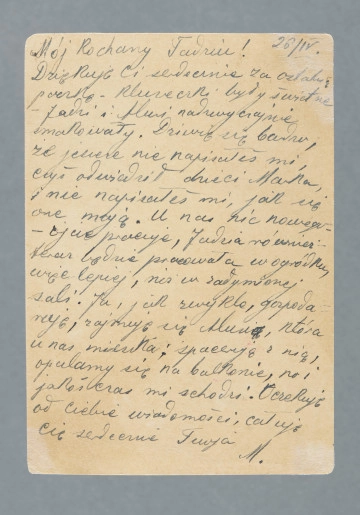 Mój Kochany Tadziu! 26/IV.
Dziękuję Ci serdecznie za ostatnią
paczkę - kluseczki były świetne
- Jadzi i Musi nadzwyczajnie
smakowały. Dziwię się bardzo,
że jeszcze nie napisałeś mi,
czyś odwiedził dzieci Marka,
i nie napisałeś mi, jak się
one mają. U nas nic nowego
- Ojciec pracuje, Jadzia również
teraz będzie pracowała w ogródku,
więc lepiej, niż w zadymionej
sali. Ja, jak zwykle, gospoda-
ruję, zajmuję się Musią, która
u nas mieszka; spaceruję z nią,
opalamy się na balkonie, no i
jakoś czas mi schodzi. Oczekuję
od Ciebie wiadomości, całuję
Cię serdecznie Twoja
M.